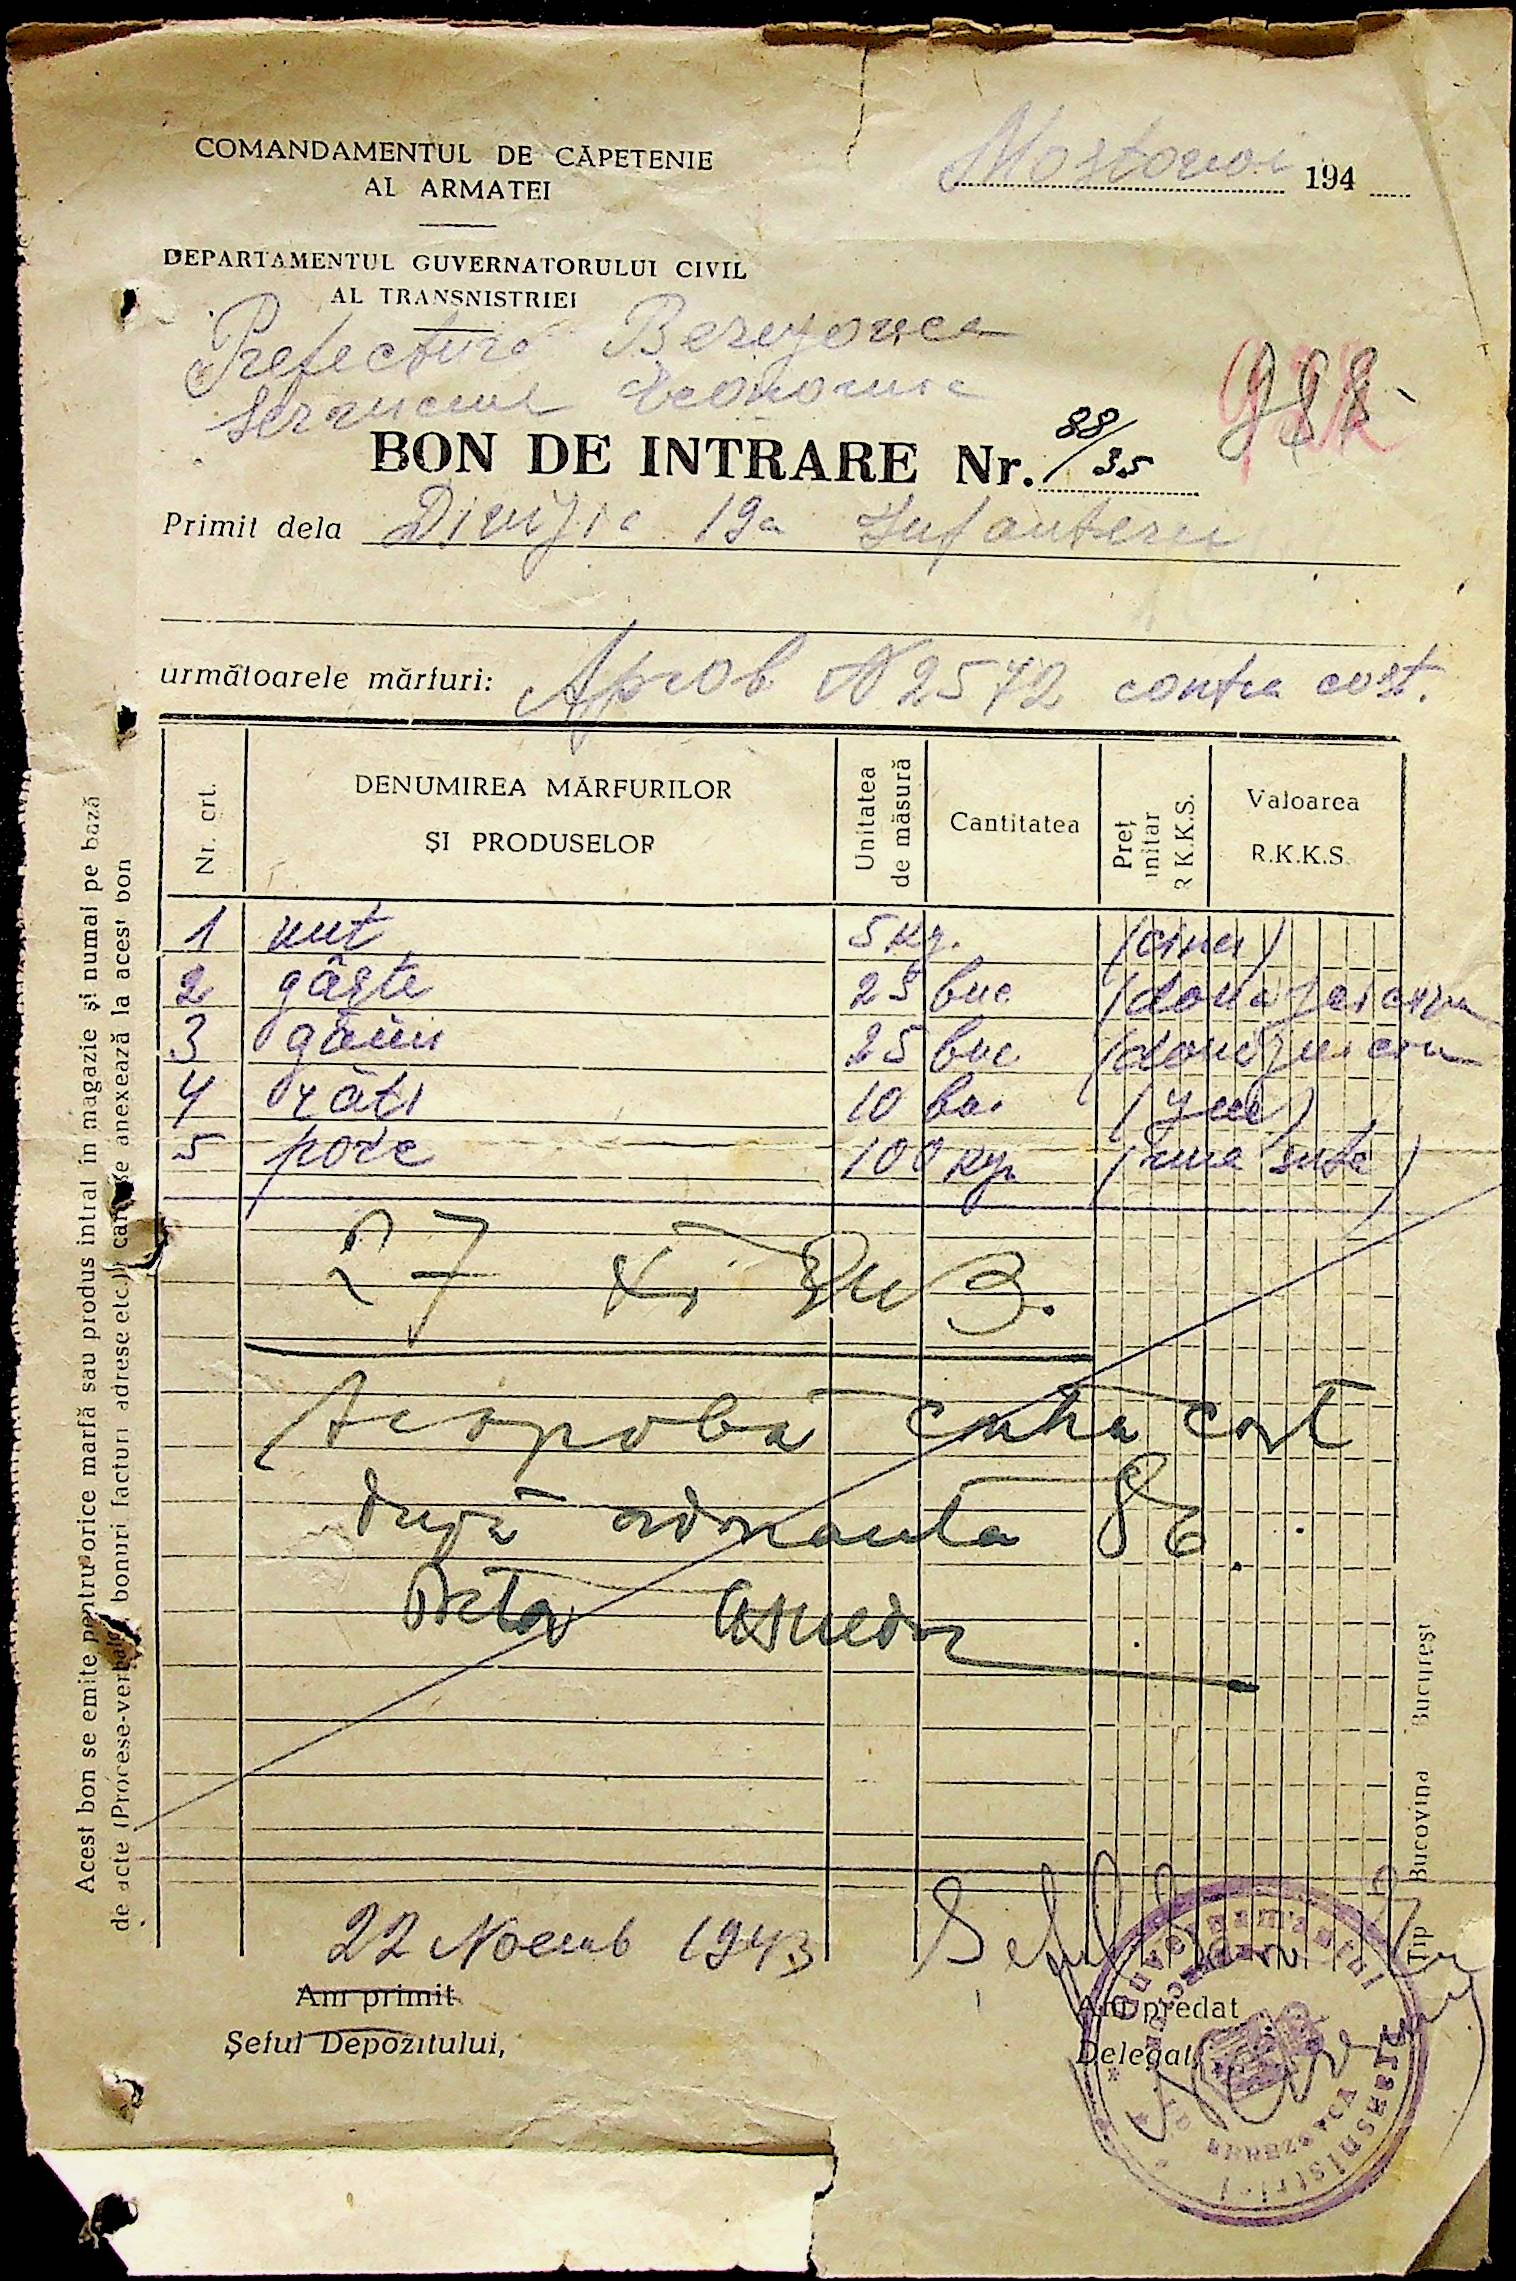 COMANDAMENTUL DE CĂPETENIE
AL ARMATEI
Mostovoi 194
DEPARTAMENTUL GUVERNATORULUI CIVIL
AL TRANSNISTRIEI
Prefectura Berezovca
Serviciul Economic
988
BON DE INTRARE Nr. 88/35
Primit dela Divizia 19a Infanterie
următoarele mărfuri: Aprob N 2572 contra cost.
Nr. crt.
DENUMIREA MĂRFURILOR
ȘI PRODUSELOR
Unitatea
de măsură
Cantitatea
Preț
unitar
R.K.K.S.
Valoarea
R.K.K.S.
1 unt 5 kg. (cinci)
2 gâște 25 buc
3 găini 25 buc
4 rațe 10 buc (zece)
5 porc 100 kgr (una sută)
27 XI
Se aprobă contra cost
după ordonanța 86.
22 Noemb 1943
Șeful Serv.
Am primit
Șeful Depozitului,
Am predat
Delegat,
Guvernământul Transnistriei
BEREZOVCA
Acest bon se emite pentru orice marfă sau produs intrat în magazie și numai pe bază
de acte (Procese-verbale, bonuri facturi adrese etc.) care se anexează la acest bon
Tip Bucovina București